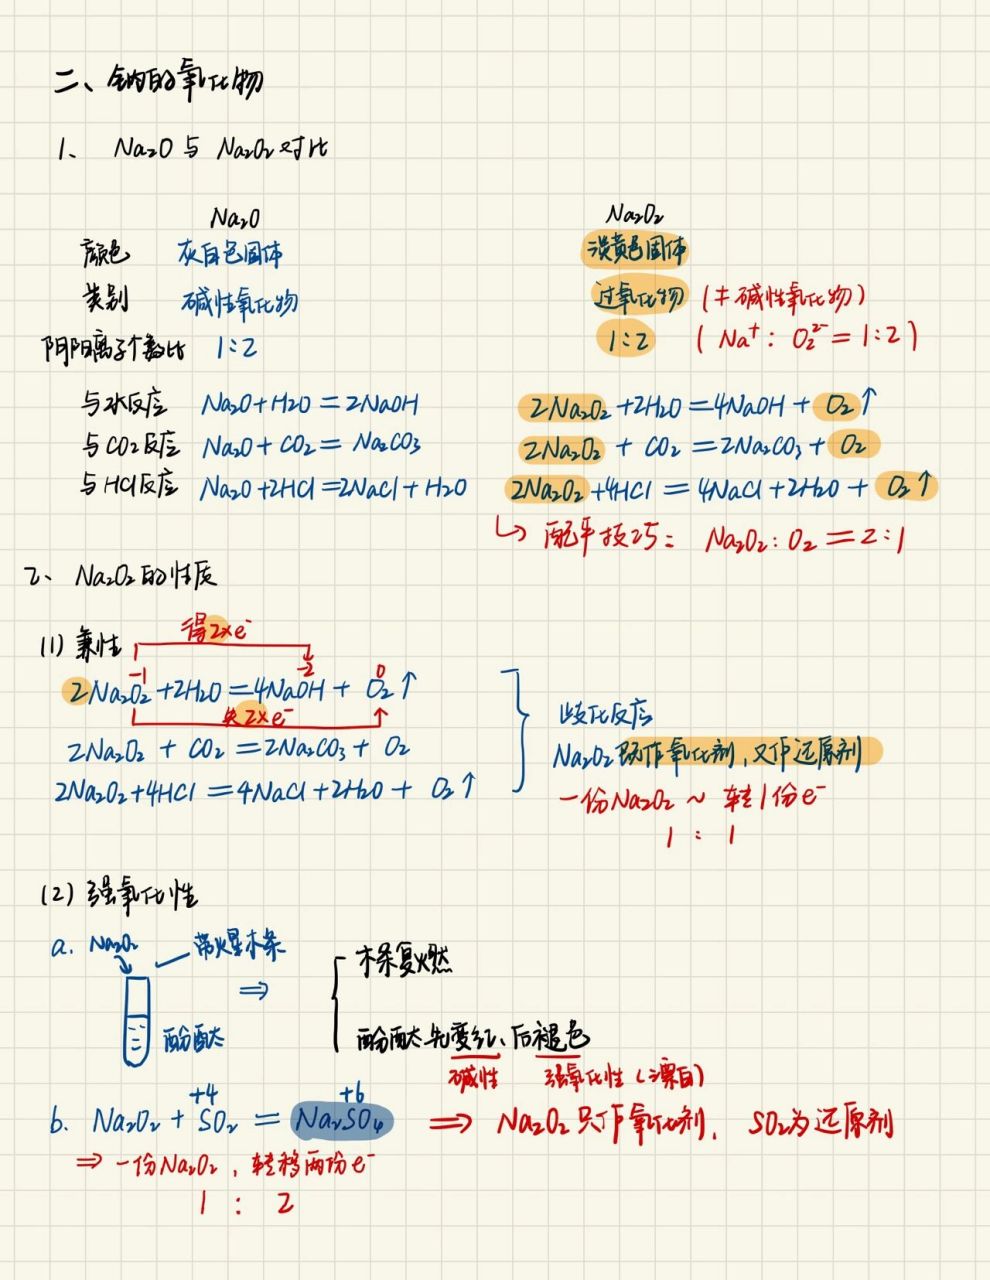 二、钠的氧化物
1、 Na₂O 与 Na₂O₂ 对比
Na₂O Na₂O₂
颜色 灰白色固体 淡黄色固体
类别 碱性氧化物 过氧化物 (≠碱性氧化物)
阴阳离子个数比 1:2 1:2 ( Na⁺: O₂²⁻ = 1:2 )
与水反应 Na₂O+H₂O=2NaOH 2Na₂O₂+2H₂O=4NaOH+O₂↑
与CO₂反应 Na₂O+CO₂=Na₂CO₃ 2Na₂O₂+CO₂=2Na₂CO₃+O₂
与HCl反应 Na₂O+2HCl=2NaCl+H₂O 2Na₂O₂+4HCl=4NaCl+2H₂O+O₂↑
↳ 配平技巧: Na₂O₂:O₂=2:1
2、 Na₂O₂的性质
得2×e⁻
(1) 兼性
-1 -2 0
2Na₂O₂+2H₂O=4NaOH+O₂↑
失2×e⁻
歧化反应
2Na₂O₂+CO₂=2Na₂CO₃+O₂
Na₂O₂既作氧化剂,又作还原剂
2Na₂O₂+4HCl=4NaCl+2H₂O+O₂↑
一份Na₂O₂ ~ 转1份e⁻
1 : 1
(2) 强氧化性
a. Na₂O₂ 带火星木条
⇒ 木条复燃
酚酞 酚酞先变红、后褪色
碱性 强氧化性(漂白)
+4 +6
b. Na₂O₂+SO₂=Na₂SO₄ ⇒ Na₂O₂只作氧化剂, SO₂为还原剂
⇒ 一份Na₂O₂,转移两份e⁻
1 : 2